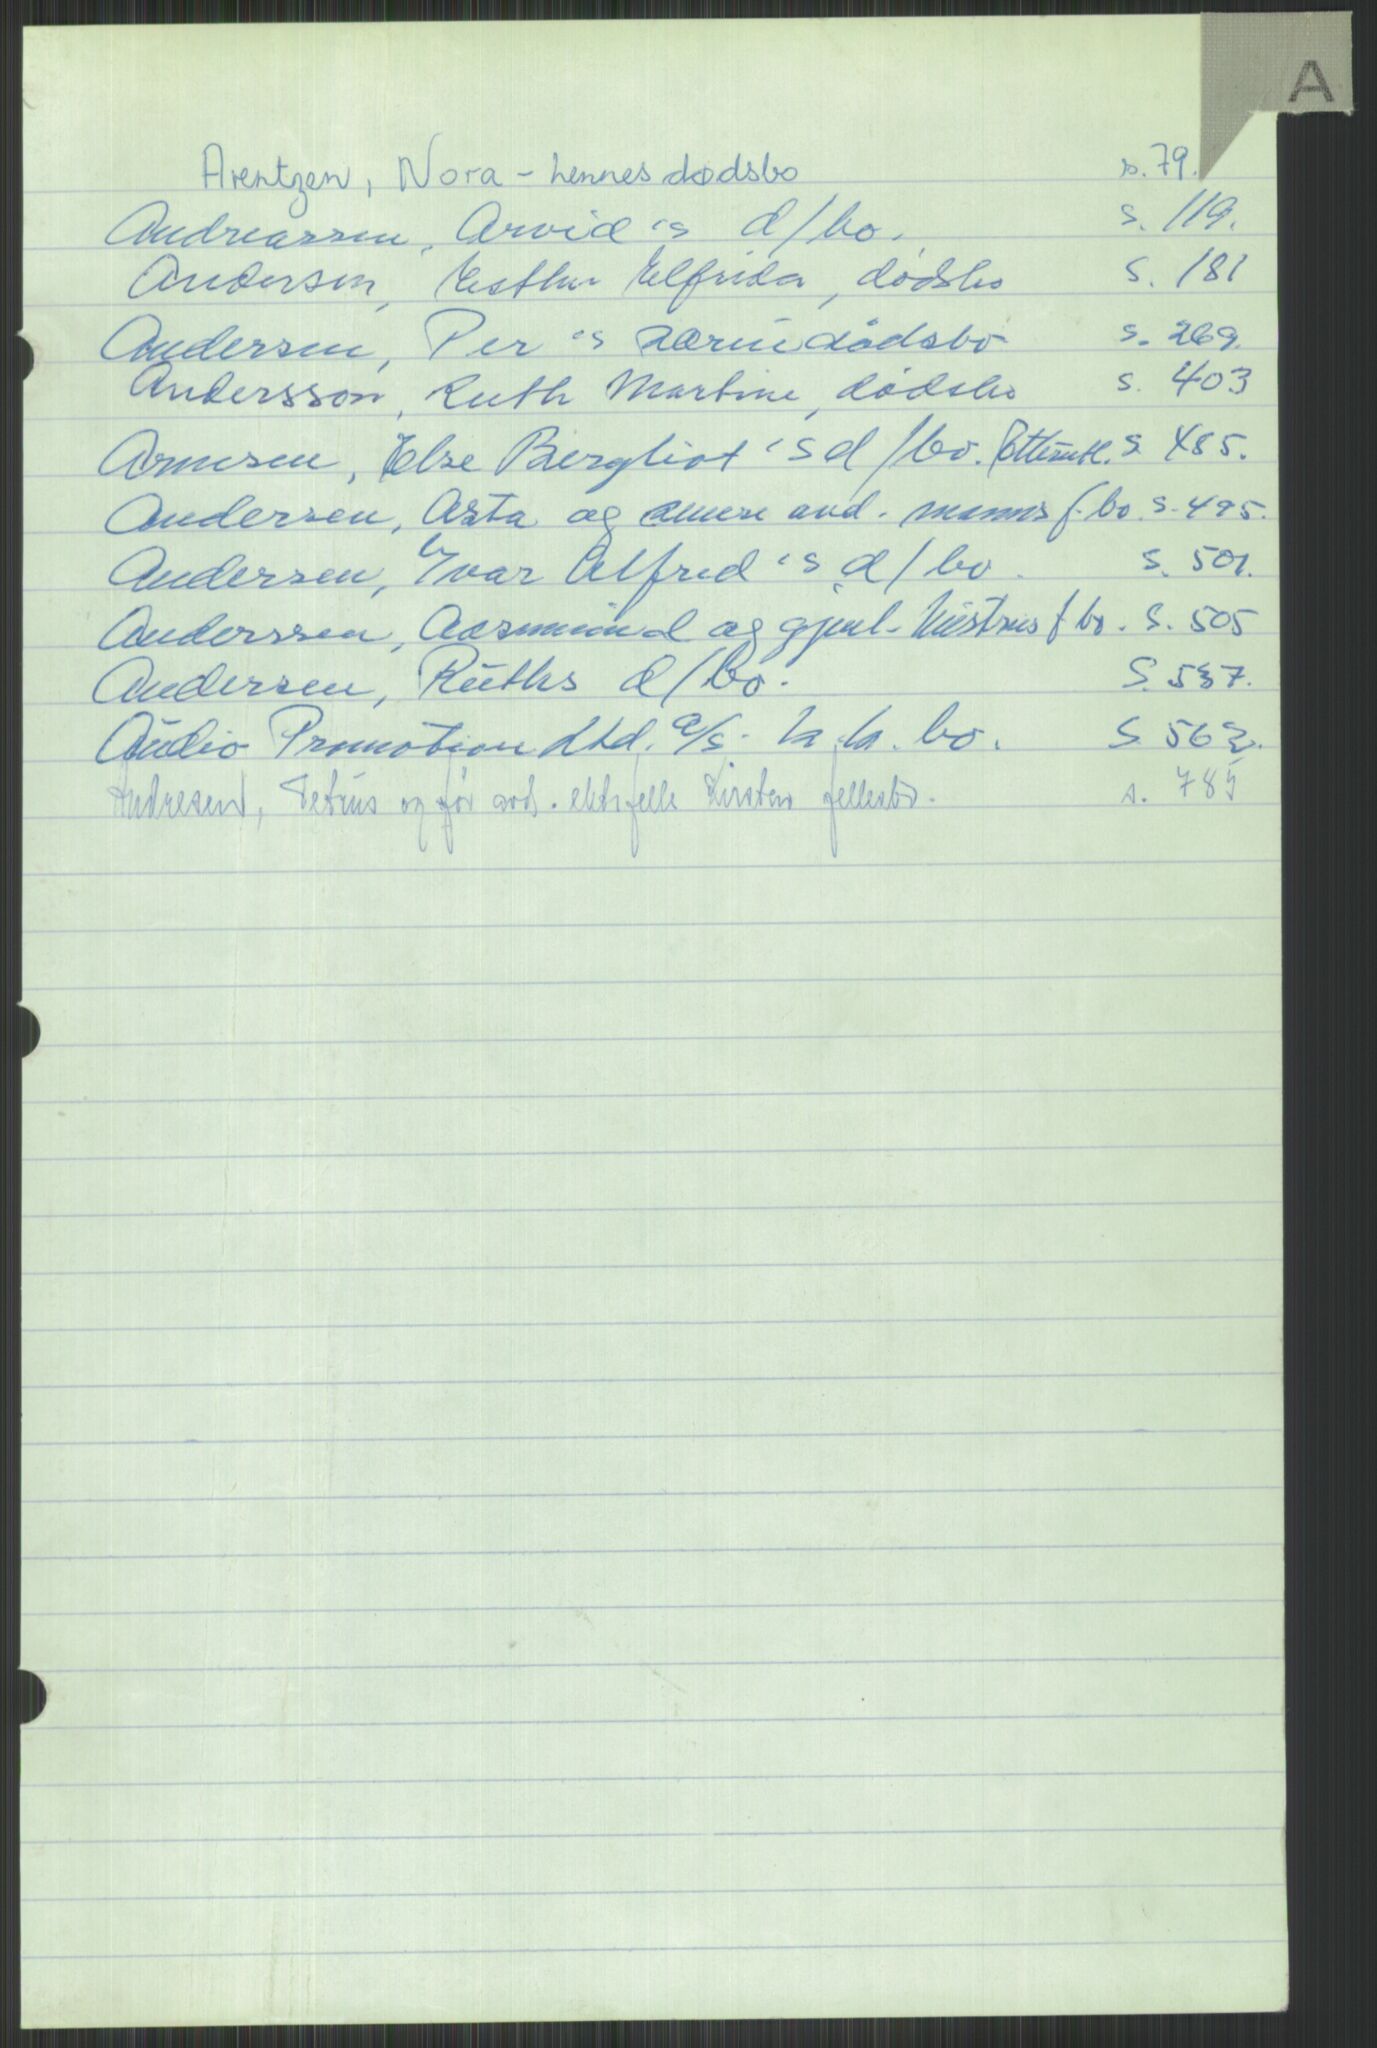 A
Arentzen, Nora - hennes dødsbo s. 79.
Andreassen, Arvid 's d/bo. s. 119.
Andersen, Esther Elfrida, dødsbo s. 181
Andersen, Per 's særeiedødsbo s. 269.
Andersson, Ruth Martine, dødsbo s. 403
Arnesen, Else Bergliot 's d/bo. s. 485.
Andersen, Asta og avd. manns f. bo. s. 495.
Andersen, Yvar Alfred 's d/bo. s. 501.
Anderssen, Aasmund og gjenl. hustrus f bo. s. 505
Andersen, Ruths d/bo. S. 537.
Audio Promotion Ltd. A/S. bo. S 562.
Andresen, Petrus og før avd. ektefelle Kirstens fellesbo. s. 785